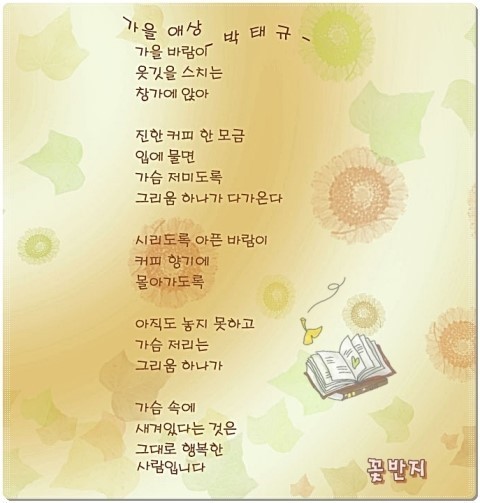 가을 애상 박 태 규 -
가을 바람이
옷깃을 스치는
창가에 앉아
진한 커피 한 모금
입에 물면
가슴 저미도록
그리움 하나가 다가온다
시리도록 아픈 바람이
커피 향기에
몰아가도록
아직도 놓지 못하고
가슴 저리는
그리움 하나가
가슴 속에
새겨있다는 것은
그대로 행복한
사람입니다
꽃반지